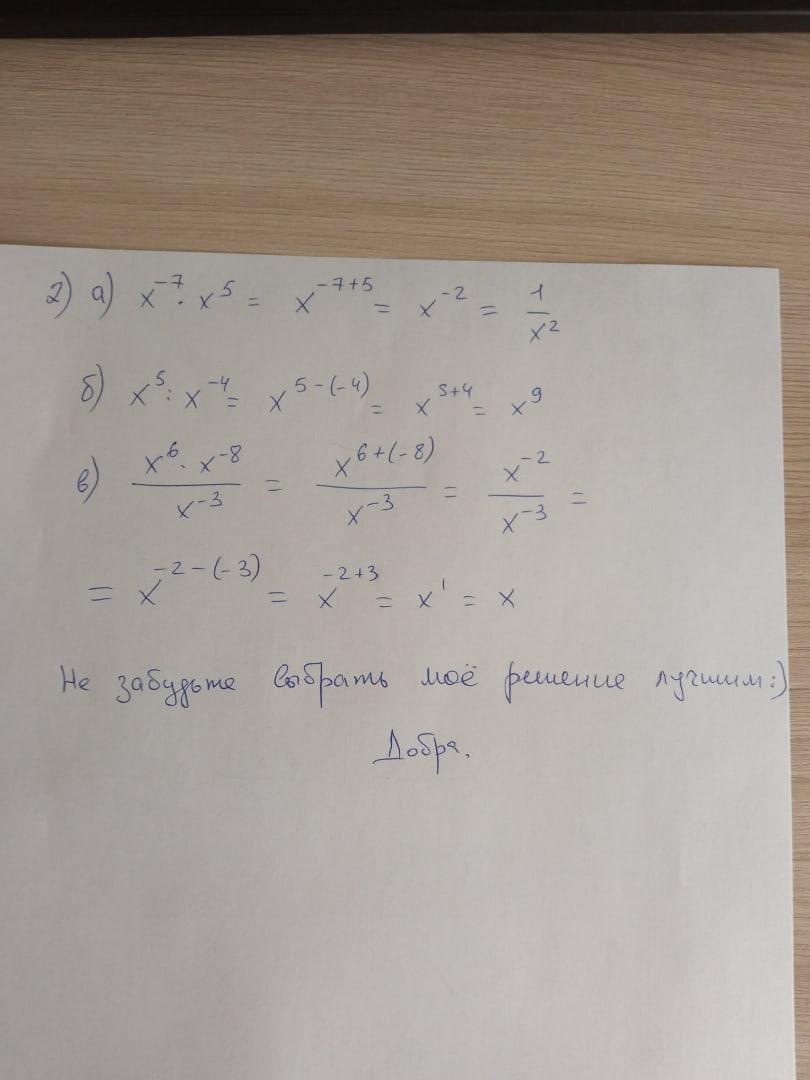 2) а) x⁻⁷ · x⁵ = x⁻⁷⁺⁵ = x⁻² = 1/x²
б) x⁵ : x⁻⁴ = x⁵⁻⁽⁻⁴⁾ = x⁵⁺⁴ = x⁹
в) (x⁶ · x⁻⁸)/x⁻³ = x⁶⁺⁽⁻⁸⁾/x⁻³ = x⁻²/x⁻³ =
= x⁻²⁻⁽⁻³⁾ = x⁻²⁺³ = x¹ = x
Не забудьте выбрать моё решение лучшим:)
Добра.